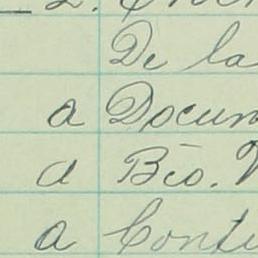 2.
De la
a Docum
a Bco.
a Conte